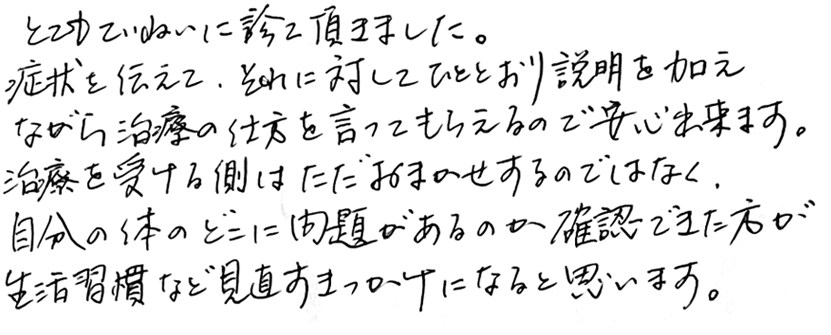 とてもていねいに診て頂きました。
症状を伝えて、それに対してひととおり説明を加え
ながら治療の仕方を言ってもらえるので安心出来ます。
治療を受ける側はただおまかせするのではなく、
自分の体のどこに問題があるのか確認できた方が
生活習慣など見直すきっかけになると思います。